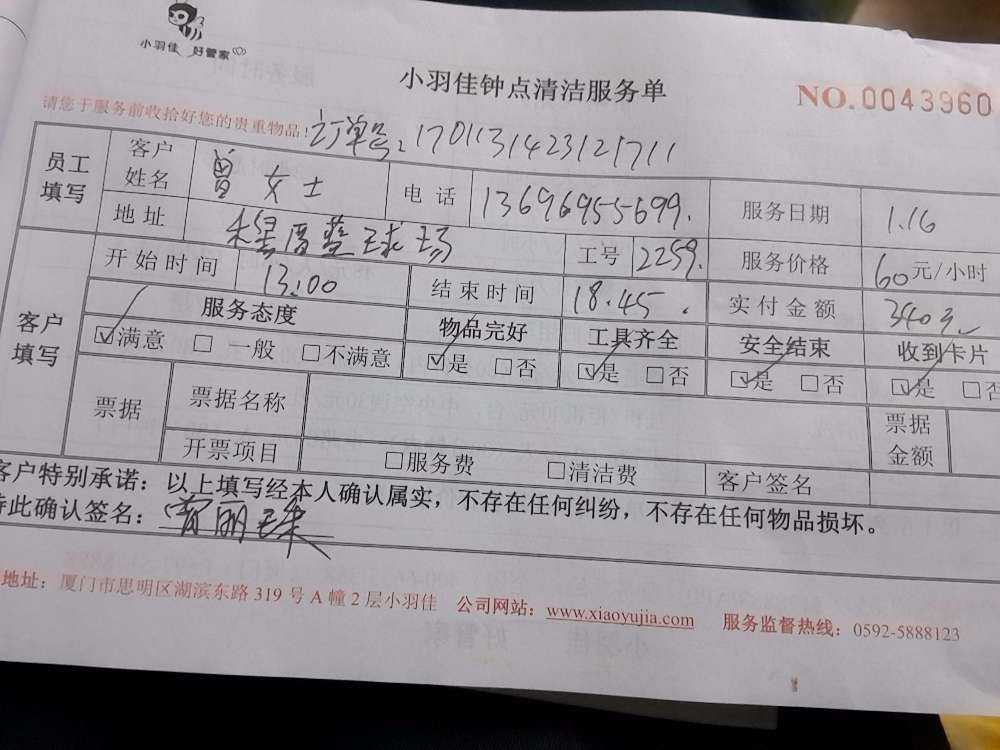 小羽佳 好管家
小羽佳钟点清洁服务单
NO.0043960
请您于服务前收拾好您的贵重物品!
订单号:1701131423121711
员工填写 客户姓名 曾女士 电话 13696955699. 服务日期 1.16
地址 篮球场 工号 2259. 服务价格 60元/小时
客户填写 开始时间 13.00 结束时间 18.45. 实付金额 340元
服务态度 物品完好 工具齐全 安全结束 收到卡片
☑满意 □一般 □不满意 ☑是 □否 ☑是 □否 ☑是 □否 ☑是 □否
票据 票据名称 票据金额
开票项目 □服务费 □清洁费 客户签名
客户特别承诺:以上填写经本人确认属实,不存在任何纠纷,不存在任何物品损坏。
特此确认签名:
地址:厦门市思明区湖滨东路319号A幢2层小羽佳 公司网站:www.xiaoyujia.com 服务监督热线:0592-5888123